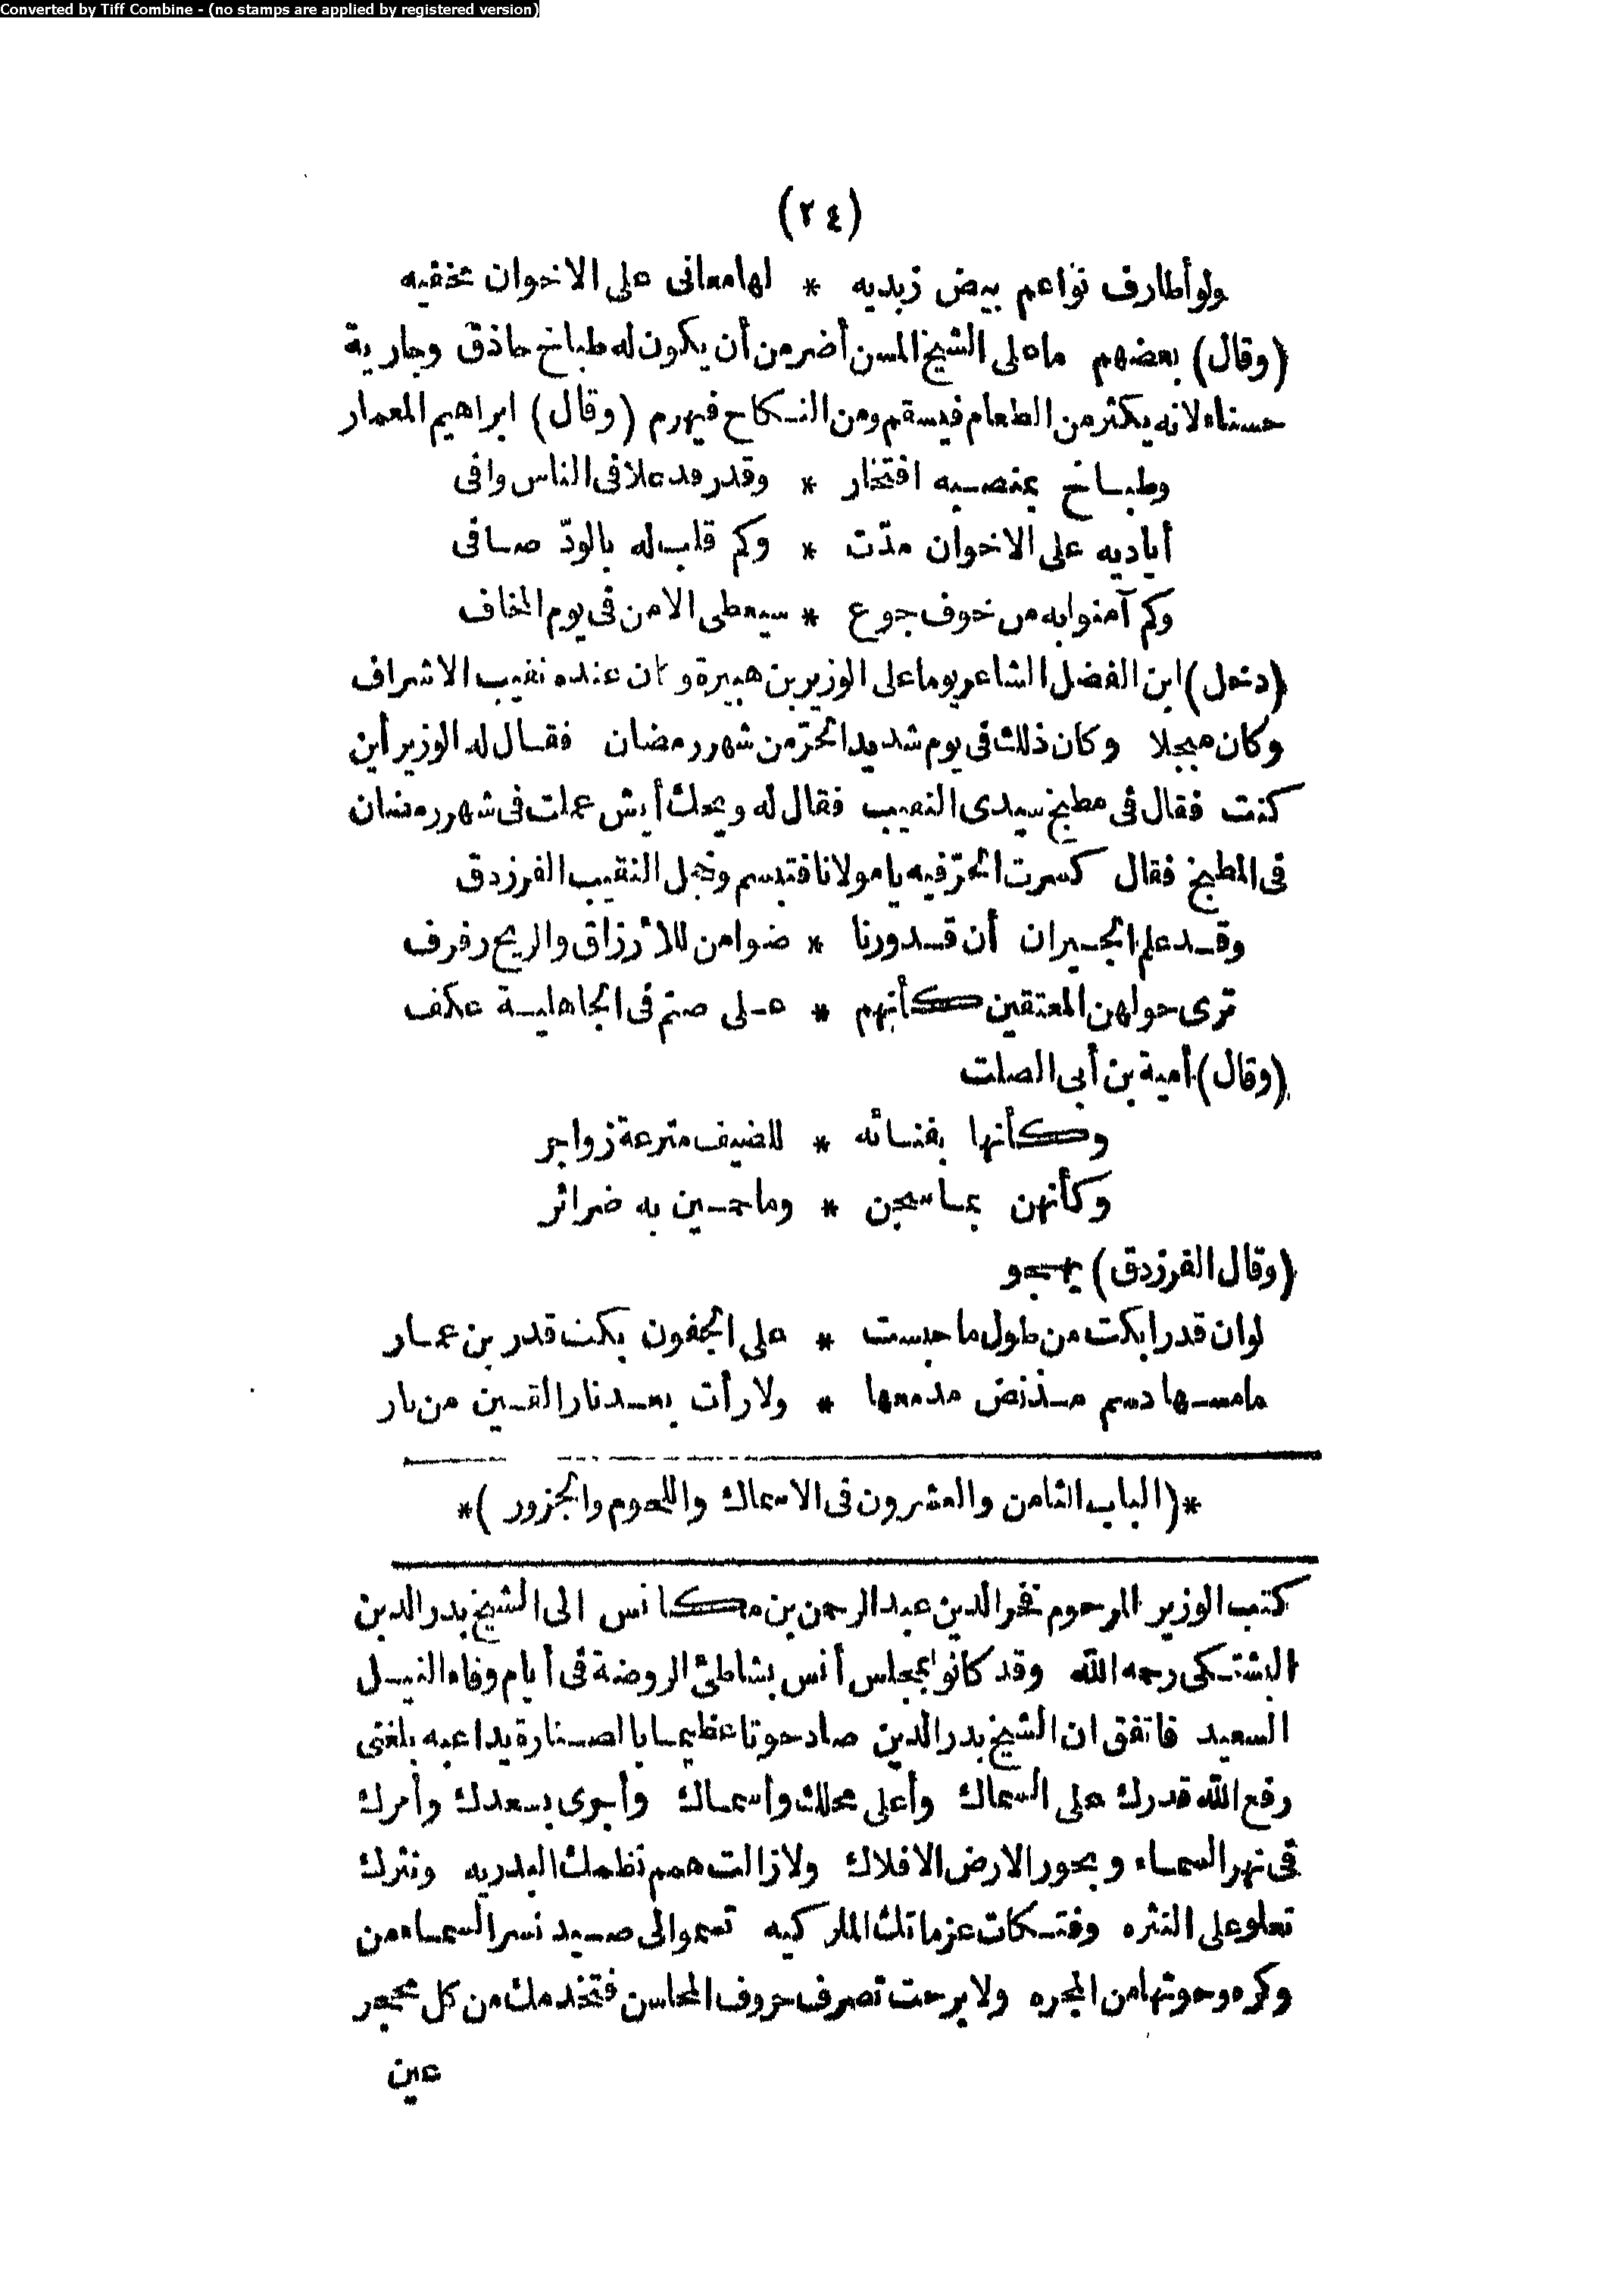 Converted by Tiff Combine - (no stamps are applied by registered version)
(٢٤)
ولو أطارف نواعم بيض زبديه * لها معانى على الاخوان مخفيه
(وقال) بعضهم ما على الشيخ المسن أضر من أن يكون له طباخ حاذق وجارية
حسناء لانه يكثر من الطعام فيسقم ومن النكاح فيهرم (وقال) ابراهيم المعمار
وطباخ بمنصبه افتخار * وقدر قد علا فى الناس وافى
أياديه على الاخوان مدّت * وكم قلب له بالودّ صافى
وكم آمنوا به من خوف جوع * سيعطى الامن فى يوم المخاف
(دخول) ابن الفضل الشاعر يوما على الوزير بن هبيرة وكان عنده نقيب الاشراف
وكان مبجلا وكان ذلك فى يوم شديد الحرّ من شهر رمضان فقال له الوزير أين
كنت فقال فى مطبخ سيدى النقيب فقال له ويحك أيش عملت فى شهر رمضان
فى المطبخ فقال كسرت الحرّ فيه يا مولانا فتبسم وخجل النقيب الفرزدق
وقد علم الجيران أن قدورنا * ضوامن للأرزاق والريح رفرف
ترى حولهن المعتقين كأنهم * على صنم فى الجاهلية عكف
(وقال) أمية بن أبى الصلت
وكأنها بفنائه * للضيف مترعة زواجر
وكأنهن بما سجن * وما حمين به ضرائر
(وقال الفرزدق) يهجو
لو ان قدرا بكت من طول ما حبست * على الجفون بكت قدر بن عمار
ما مسها دسم مذ نض مدمعها * ولا رأت بعد نار القين من نار
*(الباب الثامن والعشرون فى الاسماك واللحوم والجزور)*
كتب الوزير المرحوم فخر الدين عبد الرحمن بن مكانس الى الشيخ بدر الدين
البشتكى رحمه الله وقد كانوا بمجلس أنس بشاطئ الروضة فى أيام وفاء النيل
السعيد فاتفق ان الشيخ بدر الدين صاد حوتا عظيما بالصنارة يداعبه بلغنى
رفع الله قدرك على السماك وأعلى محلك وأسماك وأجرى بسعدك وأمرك
فى نهر السماء وبحور الارض الافلاك ولا زالت همم نظمك البدريه ونثرك
تعلو على النثره وفتكات عزماتك الملوكيه تسموالى صيد نسر السماء من
وكره وحوتها من المجره ولا برحت تصرف حروف المحاسن فتخدمك من كل محجر
عين